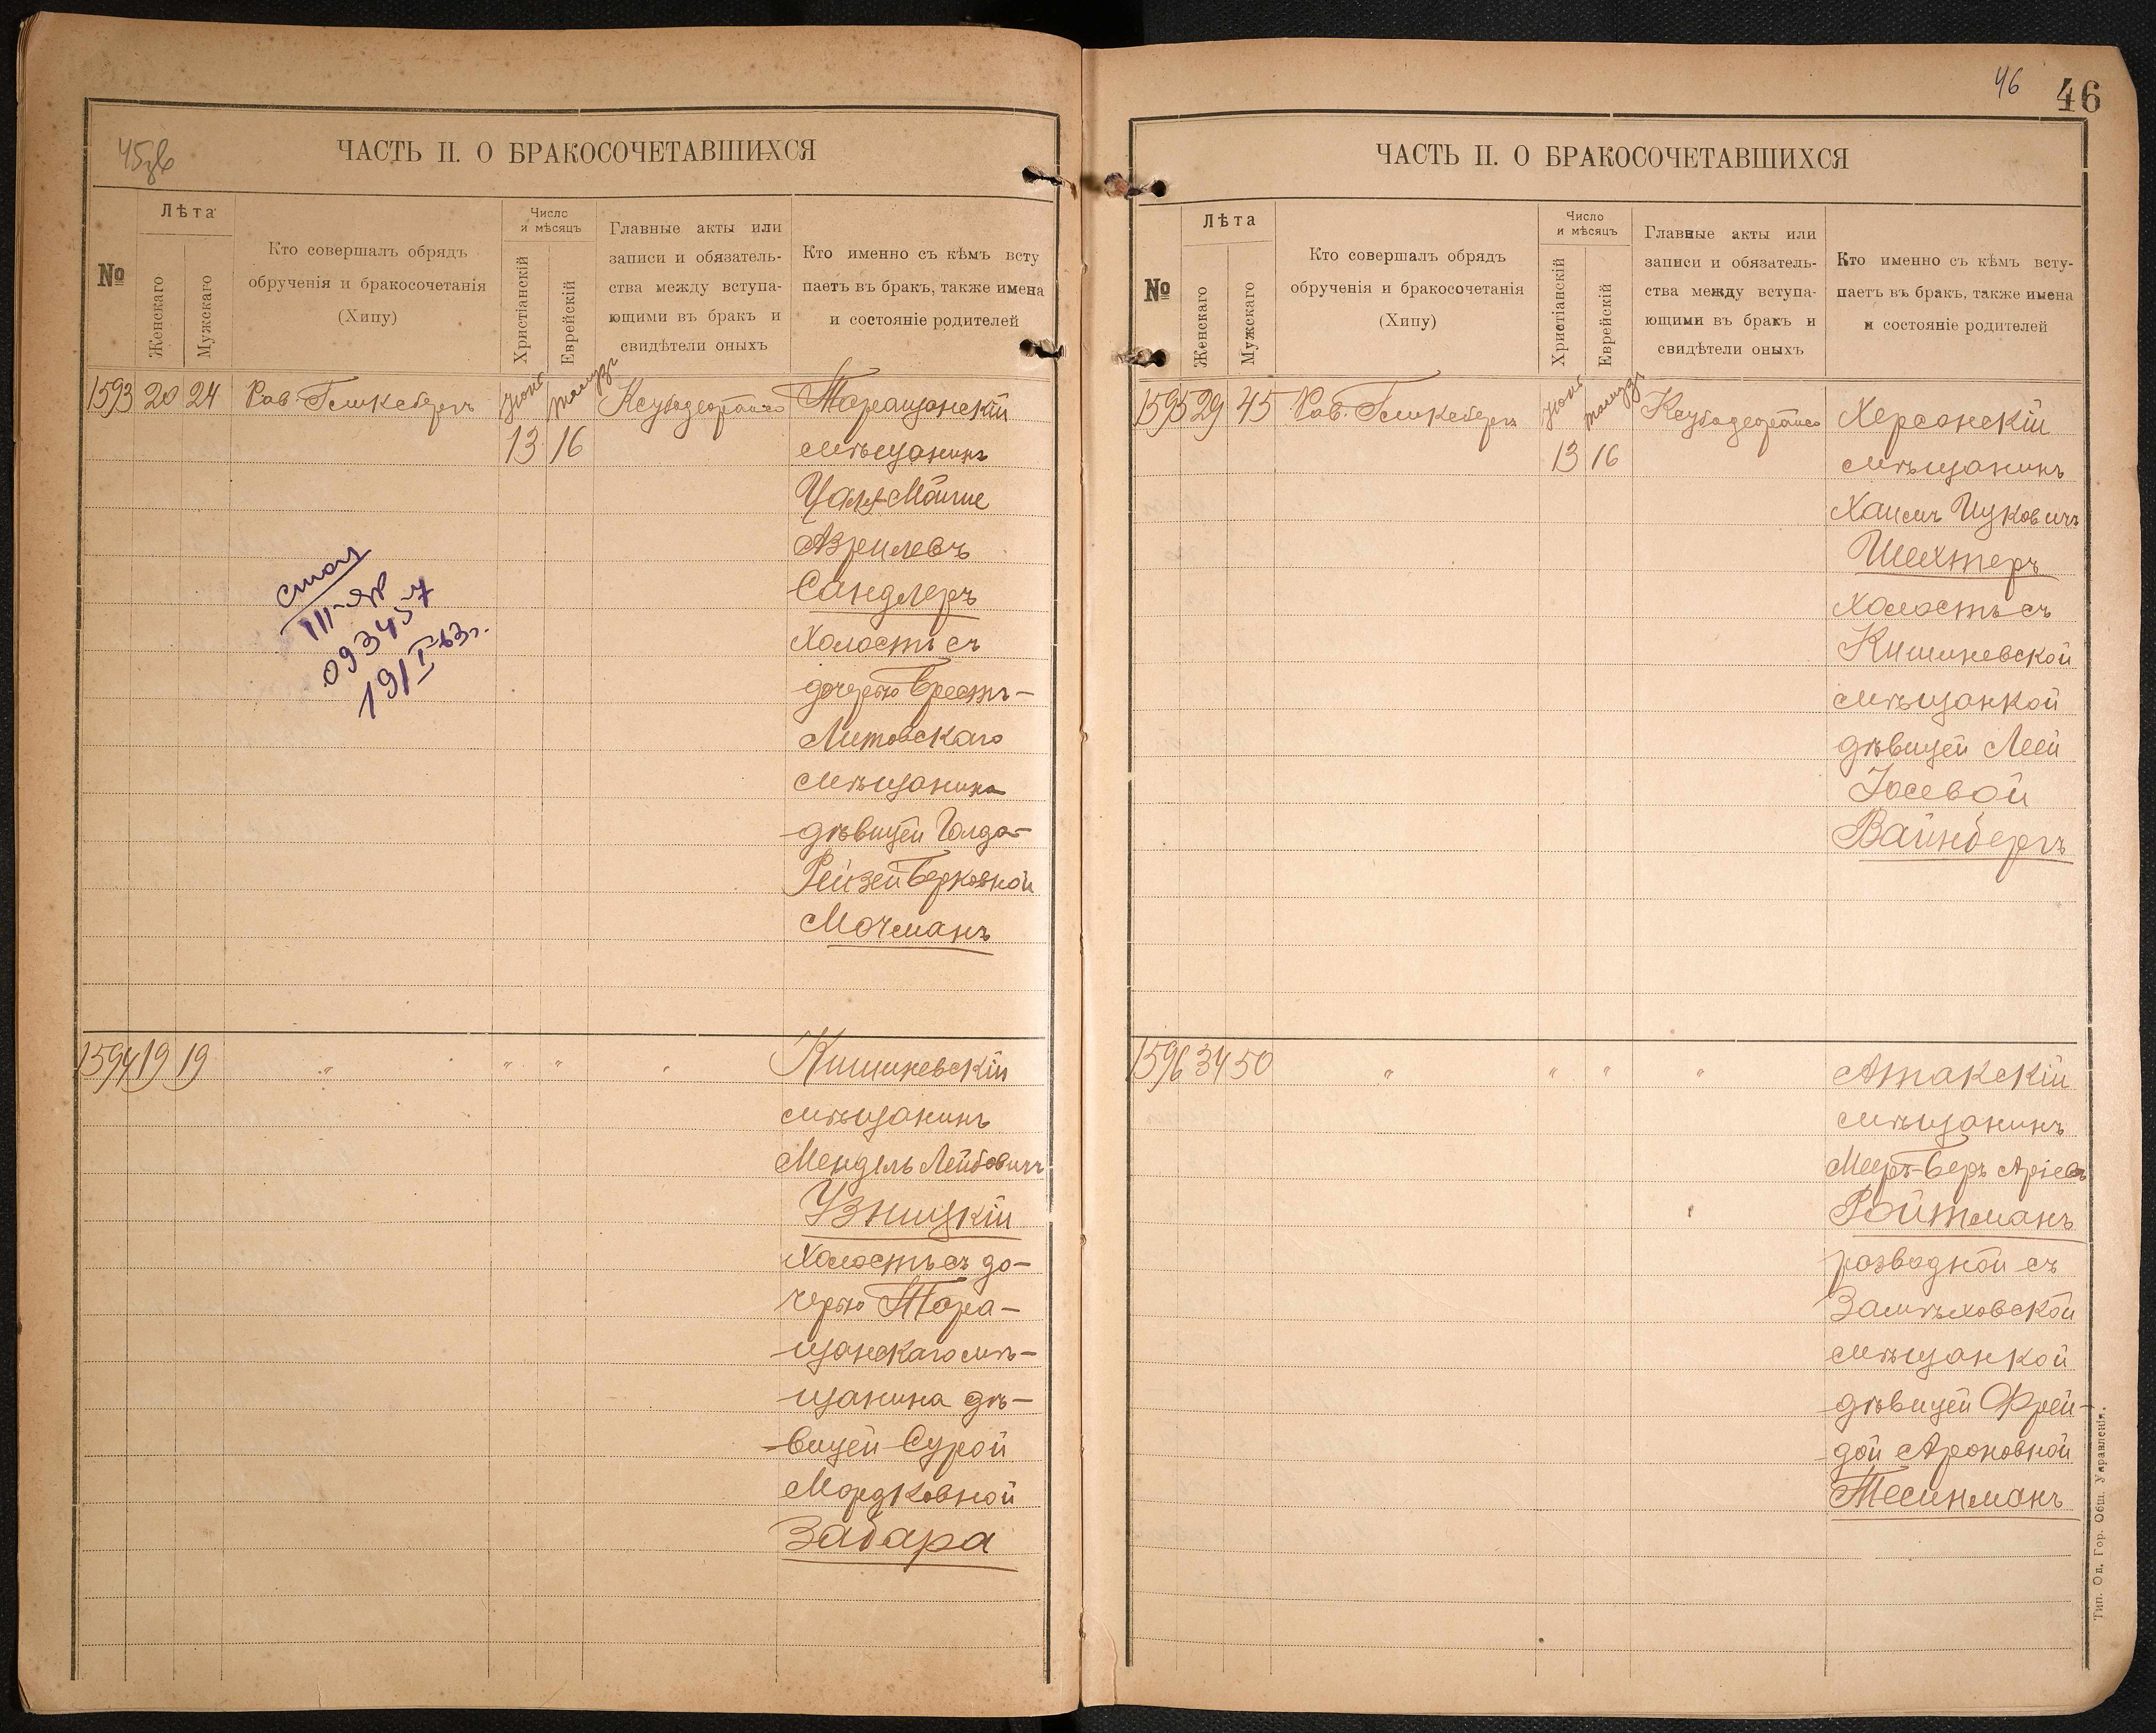 45зв
ЧАСТЬ II. О БРАКОСОЧЕТАВШИХСЯ
№
Лѣта
Женскаго
Мужскаго
Кто совершалъ обрядъ
обрученія и бракосочетанія
(Хипу)
Число
и мѣсяцъ
Христіанскій
Еврейскій
Главные акты или
записи и обязатель-
ства между вступа-
ющими въ бракъ и
свидѣтели оныхъ
Кто именно съ кѣмъ всту
паетъ въ бракъ, также имена
и состояніе родителей
1593 20 24 Рав.
13 16
Таращанскій
мѣщанинъ
Азрилевъ
Сандлеръ
холостъ съ
дочерью Брестъ-
Литовскаго
мѣщанина
дѣвицей Голда-
Рейзей Берковной
Мочманъ
III-ЯР
093457
19/I-63г.
1594 19 19 " " " "
Кишиневскій
мѣщанинъ
Мендель Лейбовичъ
Узницкій
холостъ съ до-
черью Тара-
щанскаго мѣ-
щанина дѣ-
вицей Сурой
Мордковной
Забара
46 46
ЧАСТЬ II. О БРАКОСОЧЕТАВШИХСЯ
№
Лѣта
Женскаго
Мужскаго
Кто совершалъ обрядъ
обрученія и бракосочетанія
(Хипу)
Число
и мѣсяцъ
Христіанскій
Еврейскій
Главные акты или
записи и обязатель-
ства между вступа-
ющими въ бракъ и
свидѣтели оныхъ
Кто именно съ кѣмъ всту-
паетъ въ бракъ, также имена
и состояніе родителей
1595 29 45 Рав.
13 16
Херсонскій
мѣщанинъ
Хаимъ Ицковичъ
Шехтеръ
холостъ съ
Кишиневской
мѣщанкой
дѣвицей Леей
Іосевой
Вайнбергъ
1596 34 50 " " " "
Атакскій
мѣщанинъ
Мееръ-Беръ Аріевъ
Ройтманъ
розводной съ
Замѣховской
мѣщанкой
дѣвицей Фрей-
дой Ароновной
Тесинманъ
Тип. Од. Гор. Общ. Управленія.